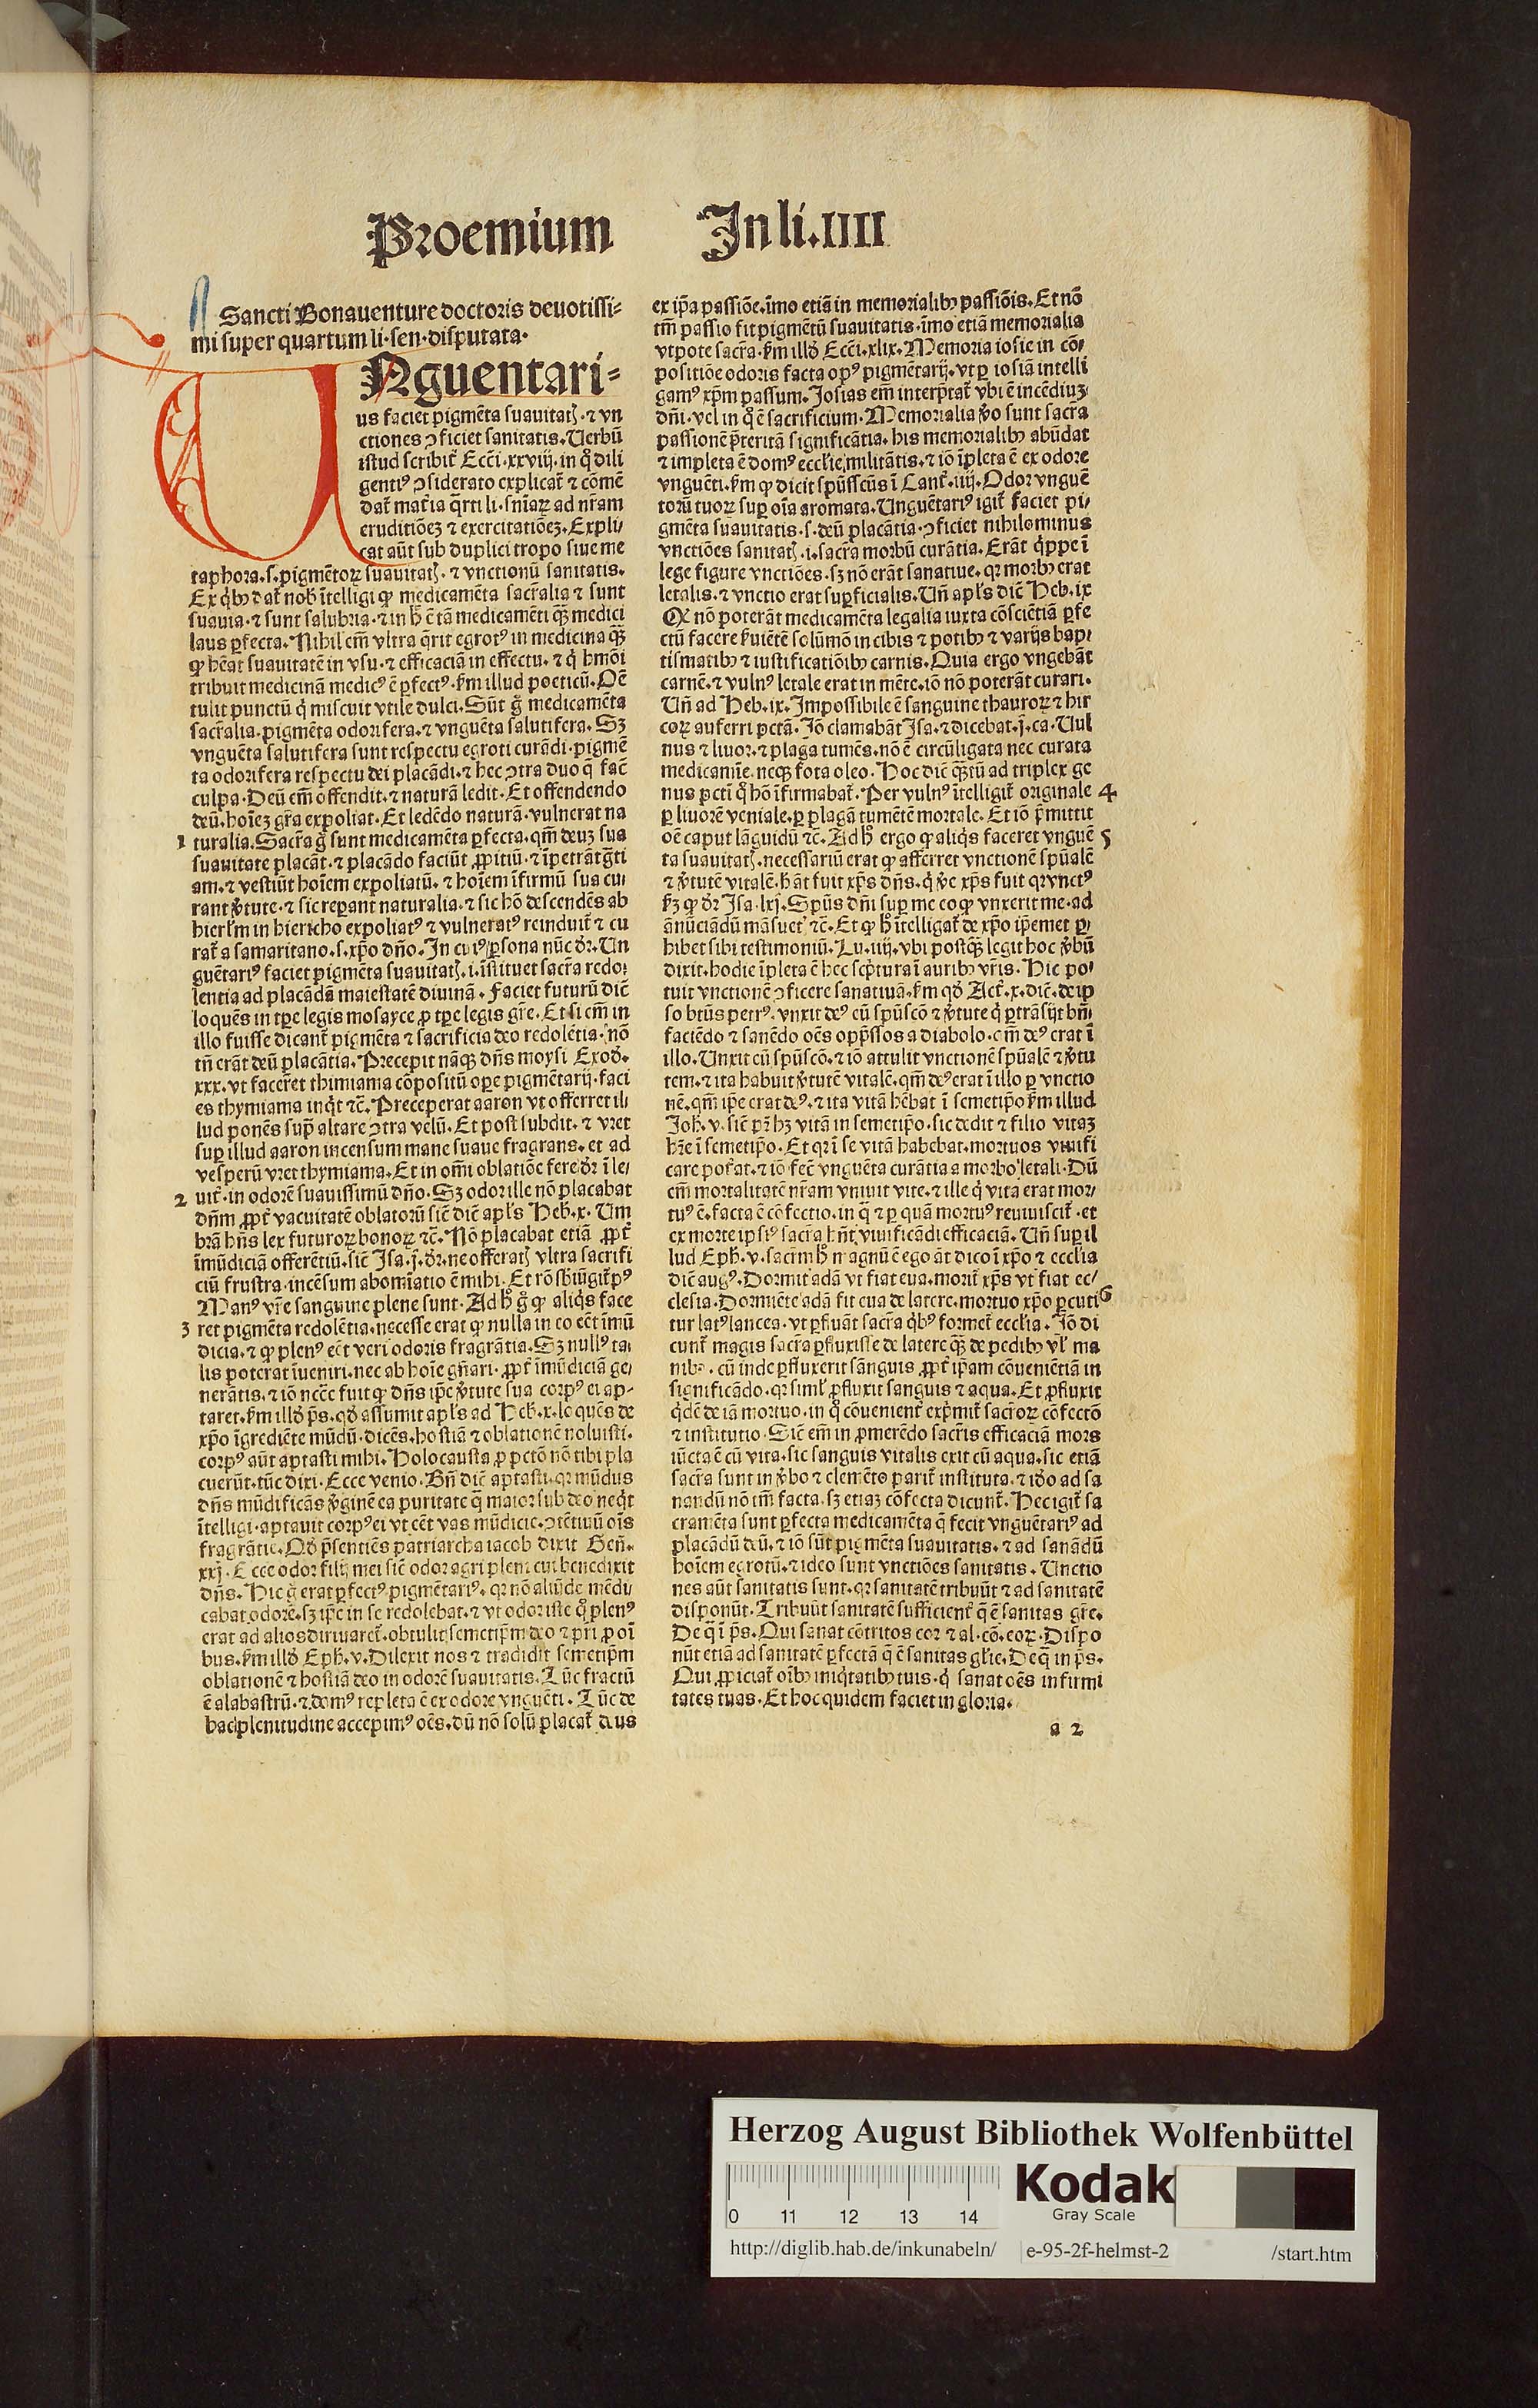 Proemium In li. IIII
Sancti Bonauenture doctoris deuotissi⸗
mi super quartum li. sen. disputata.
UNguentari⸗
us faciet pigmẽta suauitatꝭ. ⁊ vn
ctiones ꝯficiet sanitatis. Uerbũ
istud scribit̃ Ecc̃i. xxviij. in q̃ dili
gentiꝰ ꝯsiderato explicat̃ ⁊ cõmẽ
dat̃ mat̃ia q̃rti li. sñiaꝝ ad nr̃am
eruditiõeꝫ ⁊ exercitatiõeꝫ. Expli/
cat aũt sub duplici tropo siue me
taphora. s. pigmẽtoꝝ suauitatꝭ. ⁊ vnctionũ sanitatis.
suauia. ⁊ sunt salubria. ⁊ in h̃ ẽ tã medicamẽti qꝫ̃ medici
laus ꝑfecta. Nihil em̃ vltra q̃rit egrotꝰ in medicina qꝫ̃
ꝙ hẽat suauitatẽ in vsu. ⁊ efficaciã in effectu. ⁊ q̃ hmõi
tribuit medicinã medicꝰ ẽ ꝑfectꝰ. ẜm illud poeticũ. Oẽ
tulit punctũ q̃ miscuit vtile dulci. Sũt g̃ medicamẽta
sacr̃alia. pigmẽta odorifera. ⁊ vnguẽta salutifera. Sꝫ
vnguẽta salutifera sunt respectu egroti curãdi. pigmẽ
ta odorifera respectu dei placãdi. ⁊ hec ꝯtra duo q̃ fac̃
culpa. Deũ em̃ offendit. ⁊ naturã ledit. Et offendendo
deũ. hoĩeꝫ gr̃a expoliat. Et ledẽdo naturã. vulnerat na
1 turalia. Sacr̃a g̃ sunt medicamẽta ꝑfecta. qm̃ deuꝫ sua
suauitate placãt. ⁊ placãdo faciũt ꝓpitiũ. ⁊ ĩpetrãt gr̃ti
am. ⁊ vestiũt hoĩem expoliatũ. ⁊ hoĩem ĩfirmũ sua cu/
rant ṽtute. ⁊ sic reꝑant naturalia. ⁊ sic hõ descendẽs ab
hierl'm in hiericho expoliatꝰ ⁊ vulneratꝰ reinduit̃ ⁊ cu
rat̃ a samaritano. s. xp̃o dño. In cuiꝰ ꝑsona nũc dr̃. Un
guẽtariꝰ faciet pigmẽta suauitatꝭ. i. ĩstituet sacr̃a redo/
lentia ad placãdã maiestatẽ diuinã. Faciet futurũ dic̃
loquẽs in tꝑe legis mosayce ꝓ tꝑe legis gr̃e. Et si em̃ in
illo fuisse dicant̃ pigmẽta ⁊ sacrificia deo redolẽtia. nõ
tñ erãt deũ placãtia. Precepit nãqꝫ dñs moysi Exod̃.
xxx. vt faceret thimiama cõpositũ oꝑe pigmẽtarij. faci
es thymiama inq̃t ⁊c̃. Preceperat aaron vt offerret il/
lud ponẽs sup̃ altare ꝯtra velũ. Et post subdit. ⁊ vret
suꝑ illud aaron incensum mane suaue fragrans. et ad
vesperũ vret thymiama. Et in om̃i oblatiõe fere dr̃ ĩ le/
2 uit̃. in odorẽ suauissimũ dño. Sꝫ odor ille nõ placabat
dñm ꝓpt̃ vacuitatẽ oblatorũ sic̃ dic̃ apl's Heb̃. x. Um
brã hñs lex futuroꝝ bonoꝝ ⁊c̃. Nõ placabat etiã ꝓpt̃
ĩmũdiciã offerẽtiũ. sic̃ Isa. j. dr̃. ne offeratꝭ vltra sacrifi
ciũ frustra. incẽsum abomĩatio ẽ mihi. Et rõ sb̃iũgit̃ pꝰ
Manꝰ vr̃e sanguine plene sunt. Ad h̃ g̃ ꝙ aliq̃s face
3 ret pigmẽta redolẽtia. necesse erat ꝙ nulla in eo eẽt ĩmũ
dicia. ⁊ ꝙ plenꝰ eẽt veri odoris fragrãtia. Sꝫ nullꝰ ta/
lis poterat ĩueniri. nec ab hoĩe gñari. ꝓpt̃ ĩmũdiciã ge/
nerãtis. ⁊ iõ necc̃e fuit ꝙ dñs ip̃e ṽtute sua corpꝰ ei ap⸗
taret. ẜm illd̃ p̃s. qd̃ assumit apl's ad Heb̃. x. loquẽs de
xp̃o ĩgrediẽte mũdũ. dicẽs. hostiã ⁊ oblationẽ noluisti.
corpꝰ aũt aptasti mihi. Holocausta ꝓ pctõ nõ tibi pla
cuerũt. tũc dixi. Ecce venio. Bñ dic̃ aptasti. qꝛ mũdus
dñs mũdificãs ṽginẽ ea puritate q̃ maior sub deo neq̃t
ĩtelligi. aptauit corpꝰ ei vt eẽt vas mũdicie. ꝯtẽtiuũ oĩs
fragrãtie. Qd̃ p̃sentiẽs patriarcha iacob dixit Geñ.
xxj. Ecce odor filij mei sic̃ odor agri pleni cui benedixit
dñs. Hic g̃ erat ꝑfectꝰ pigmẽtariꝰ. qꝛ nõ aliũde mẽdi/
cabat odorẽ. sꝫ ip̃e in se redolebat. ⁊ vt odor iste q̃ plenꝰ
erat ad alios diriuaret̃. obtulit semetip̃m deo ⁊ pr̃i ꝓ oĩ
bus. ẜm illd̃ Eph̃. v. Dilexit nos ⁊ tradidit semetip̃m
oblationẽ ⁊ hostiã deo in odorẽ suauitatis. Tũc fractũ
ẽ alabastrũ. ⁊ domꝰ repleta ẽ ex odore vnguẽti. Tũc de
hac plenitudine accepimꝰ oẽs. dũ nõ solũ placat̃ deus
ex ip̃a passiõe. ĩmo etiã in memorialibꝰ passiõis. Et nõ
tm̃ passio fit pigmẽtũ suauitatis. ĩmo etiã memorialia
vtpote sacr̃a. ẜm illd̃ Ecc̃i. xlix. Memoria iosie in cõ/
positiõe odoris facta opꝰ pigmẽtarij. vt ꝑ iosiã intelli
gamꝰ xp̃m passum. Josias em̃ interp̃tat̃ vbi ẽ incẽdiuꝫ
dñi. vel in q̃ ẽ sacrificium. Memorialia ṽo sunt sacr̃a
passionẽ p̃teritã significãtia. his memorialibꝰ abũdat
⁊ impleta ẽ domꝰ eccl'ie militãtis. ⁊ iõ ĩpleta ẽ ex odore
vnguẽti. ẜm ꝙ dicit spũsscũs ĩ Cant̃. iiij. Odor vnguẽ
torũ tuoꝝ suꝑ oĩa aromata. Unguẽtariꝰ igit̃ faciet pi/
gmẽta suauitatis. s. deũ placãtia. ꝯficiet nihilominus
vnctiões sanitatꝭ. i. sacr̃a morbũ curãtia. Erãt q̃ppe ĩ
lege figure vnctiões. sꝫ nõ erãt sanatiue. qꝛ morbꝰ erat
letalis. ⁊ vnctio erat suꝑficialis. Uñ apl's dic̃ Heb. ix
Qꝛ nõ poterãt medicamẽta legalia iuxta cõsciẽtiã ꝑfe
ctũ facere ẜuiẽtẽ solũmõ in cibis ⁊ potibꝰ ⁊ varijs bap/
tismatibꝰ ⁊ iustificatiõibꝰ carnis. Quia ergo vngebãt
carnẽ. ⁊ vulnꝰ letale erat in mẽte. iõ nõ poterãt curari.
Uñ ad Heb. ix. Impossibile ẽ sanguine thauroꝝ ⁊ hir
coꝝ auferri pctã. Iõ clamabãt Isa. ⁊ dicebat. j. ca. Uul
nus ⁊ liuor. ⁊ plaga tumẽs. nõ ẽ circũligata nec curata
medicamĩe. neqꝫ fota oleo. Hoc dic̃ qꝫ̃tũ ad triplex ge
nus pcti q̃ hõ ĩfirmabat̃. Per vulnꝰ ĩtelligit̃ originale 4
ꝑ liuorẽ veniale. ꝑ plagã tumẽtẽ mortale. Et iõ p̃mittit
oẽ caput lãguidũ ⁊c̃. Ad h̃ ergo ꝙ aliq̃s faceret vnguẽ 5
ta suauitatꝭ. necessariũ erat ꝙ afferret vnctionẽ spũalẽ
⁊ ṽtutẽ vitalẽ. h̃ ãt fuit xp̃s dñs. q̃ ṽe xp̃s fuit qꝛ vnctꝰ
ẜꝫ ꝙ dr̃ Isa. lxj. Spũs dñi suꝑ me eo ꝙ vnxerit me. ad
ãnũciãdũ mãsuet̃ ⁊c̃. Et ꝙ h̃ ĩtelligat̃ de xp̃o ip̃emet ꝑ/
hibet sibi testimoniũ. Lu. iiij. vbi postqꝫ̃ legit hoc ṽbũ
dixit. hodie ĩpleta ẽ hec scp̃tura ĩ auribꝰ vr̃is. Hic po/
tuit vnctionẽ ꝯficere sanatiuã. ẜm qd̃ Act̃. x. dic̃. de ip
so btũs petrꝰ. vnxit deꝰ cũ spũscõ ⁊ ṽtute q̃ ꝑtrãsijt bñ
faciẽdo ⁊ sanẽdo oẽs opp̃ssos a diabolo. qm̃ deꝰ erat ĩ
illo. Unxit cũ spũscõ. ⁊ iõ attulit vnctionẽ spũalẽ ⁊ ṽtu
tem. ⁊ ita habuit ṽtutẽ vitalẽ. qm̃ deꝰ erat ĩ illo ꝑ vnctio
nẽ. qm̃ ip̃e erat deꝰ. ⁊ ita vitã hẽbat ĩ semetip̃o ẜm illud
Joh̃. v. sic̃ pr̃ hꝫ vitã in semetip̃o. sic dedit ⁊ filio vitaꝫ
hr̃e ĩ semetip̃o. Et qꝛ ĩ se vitã habebat. mortuos viuifi
care pot̃at. ⁊ iõ fec̃ vnguẽta curãtia a morbo letali. Dũ
em̃ mortalitatẽ nr̃am vniuit vite. ⁊ ille q̃ vita erat mor/
tuꝰ ẽ. facta ẽ cõfectio. in q̃ ⁊ ꝑ quã mortuꝰ reuiuiscit̃. et
ex morte ipsiꝰ sacr̃a hñt viuificãdi efficaciã. Uñ suꝑ il
lud Eph̃. v. sacr̃m h̃ magnũ ẽ ego ãt dico ĩ xp̃o ⁊ ecclia
dic̃ augꝰ. Dormit adã vt fiat eua. morit̃ xp̃s vt fiat ec/
clesia. Dormiẽte adã fit eua de latere. mortuo xp̃o ꝑcuti 6
tur latꝰ lancea. vt ꝓfluãt sacr̃a q̃bꝰ formet̃ ecclia. Iõ di
cunt̃ magis sacr̃a ꝓfluxisse de latere qꝫ̃ de pedibꝰ vl' ma
nibꝰ. cũ inde ꝓfluxerit sãnguis ꝓpt̃ ip̃am cõueniẽtiã in
significãdo. qꝛ simul' ꝓfluxit sanguis ⁊ aqua. Et ꝓfluxit
q̃dẽ de iã mortuo. in q̃ cõuenient̃ exp̃mit̃ sacr̃oꝝ cõfectõ
⁊ institutio. Sic̃ em̃ in ꝓmerẽdo sacr̃is efficaciã mors
iũcta ẽ cũ vita. sic sanguis vitalis exit cũ aqua. sic etiã
sacr̃a sunt in ṽbo ⁊ elemẽto parit̃ instituta. ⁊ id̃o ad sa
nandũ nõ tm̃ facta. sꝫ etiaꝫ cõfecta dicunt̃. Hec igit̃ sa
cramẽta sunt ꝑfecta medicamẽta q̃ fecit vnguẽtariꝰ ad
placãdũ deũ. ⁊ iõ sũt pigmẽta suauitatis. ⁊ ad sanãdũ
hoĩem egrotũ. ⁊ ideo sunt vnctiões sanitatis. Unctio
nes aũt sanitatis sunt. qꝛ sanitatẽ tribuũt ⁊ ad sanitatẽ
disponũt. Tribuũt sanitatẽ sufficient̃ q̃ ẽ sanitas gr̃e.
De q̃ ĩ p̃s. Qui sanat cõtritos cor ⁊ al. cõ. eoꝝ. Dispo
nũt etiã ad sanitatẽ ꝑfectã q̃ ẽ sanitas gl'ie. De q̃ in p̃s.
Qui ꝓpiciat̃ oĩbꝰ iniq̃tatibꝰ tuis. q̃ sanat oẽs infirmi
tates tuas. Et hoc quidem faciet in gloria.
a 2
Herzog August Bibliothek Wolfenbüttel
0 11 12 13 14
Kodak
Gray Scale
http://diglib.hab.de/inkunabeln/ e-95-2f-helmst-2 /start.htm